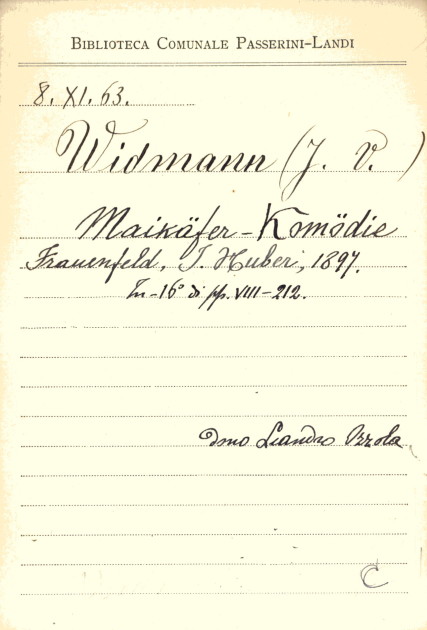 BIBLIOTECA COMUNALE PASSERINI-LANDI
8. XI. 63.
Widmann (J. V.)
Maikäfer-Komödie
Frauenfeld, J. Huber, 1897.
In-16° di pp. VIII-212.
Leandro
C